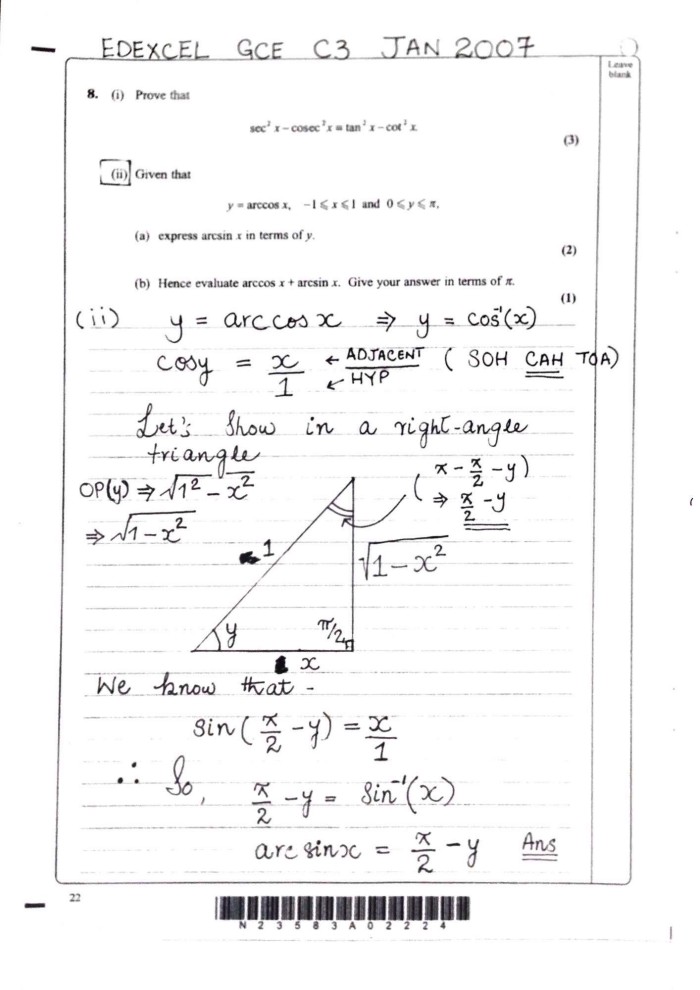 EDEXCEL GCE C3 JAN 2007
Leave
blank
8. (i) Prove that
sec² x – cosec² x ≡ tan² x – cot² x.
(3)
(ii) Given that
y = arccos x, –1 ⩽ x ⩽ 1 and 0 ⩽ y ⩽ π,
(a) express arcsin x in terms of y.
(2)
(b) Hence evaluate arccos x + arcsin x. Give your answer in terms of π.
(1)
(ii) y = arccos x ⇒ y = cos⁻¹(x)
cosy = x/1 ← ADJACENT ← HYP ( SOH CAH TOA)
Let's show in a right-angle
triangle
OP(y) ⇒ √1² – x²
⇒ √1 – x²
(π – π/2 – y)
⇒ π/2 – y
1
√1 – x²
y
π/2
x
We know that -
sin(π/2 – y) = x/1
∴ So, π/2 – y = sin⁻¹(x)
arc sinx = π/2 – y Ans
22
N 2 3 5 8 3 A 0 2 2 2 4